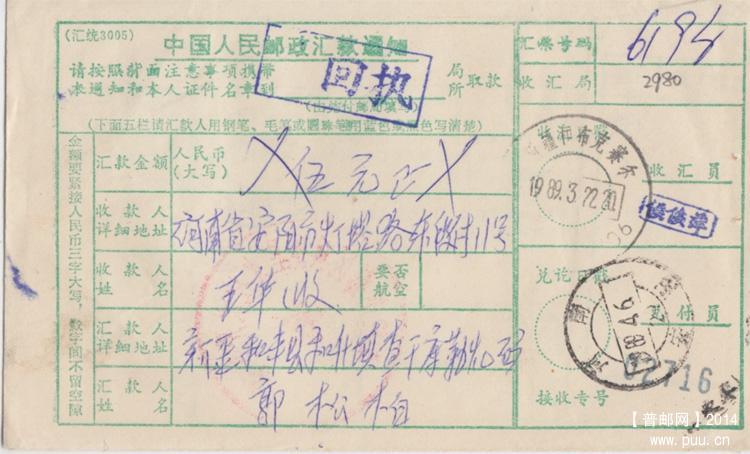 (汇统3005)
中国人民邮政汇款通知
请按照背面注意事项携带
本通知和本人证件名章到
局
所
取款
回执
(下面五栏请汇款人用钢笔、毛笔或圆珠笔用蓝色或黑色写清楚)
汇款金额
人民币
(大写)
伍元正
收款人
详细地址
河南省安阳市灯塔路东段11号
收款人
姓名
王华收
要否
航空
汇款人
详细地址
汇款人
姓名
郭松柏
金额要紧接人民币三字大写,数字间不留空隙
汇票号码
6194
收汇局
2980
疆和布克赛尔
1989.3.22.20
收汇员
兑讫日戳
兑付员
河南
安阳
02716
接收专号
【普邮网】2014
www.puu.cn